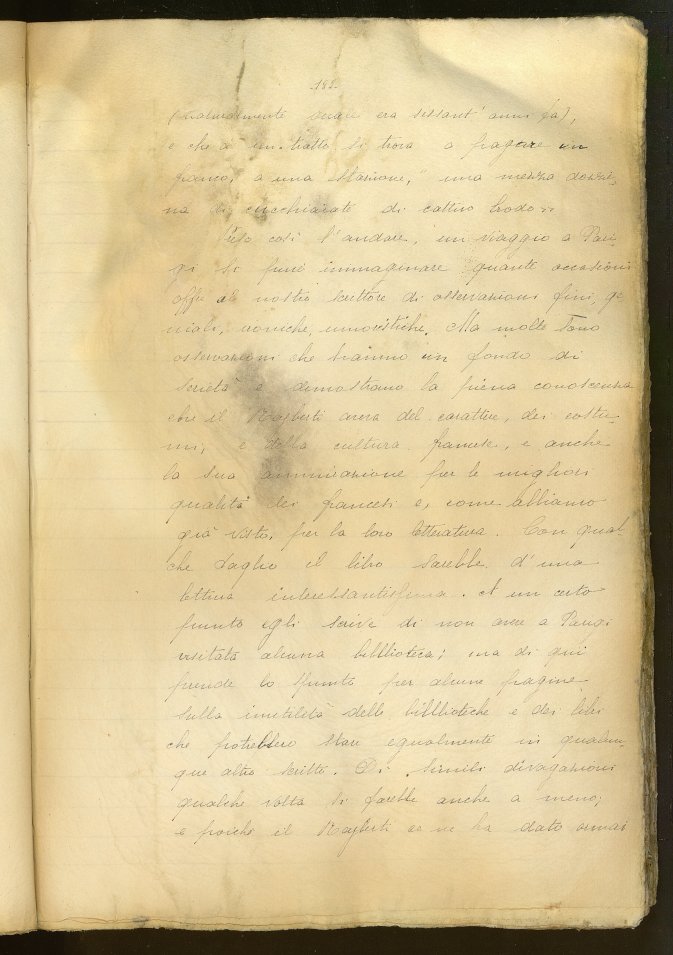 -182-
(naturalmente quale era sessant'anni fa),
e che a un tratto si trova a pagare un
franco, a una stazione, "una mezza dozzi-
na di cucchiaiate di cattivo brodo"
Preso così l'andare, un viaggio a Pari-
gi si può immaginare quante occasioni
offrì al nostro scrittore di osservazioni fini, ge-
niali, ironiche, umoristiche. Ma molte sono
osservazioni che hanno un fondo di
serietà e dimostrano la piena conoscenza
che il Rajberti aveva del carattere, dei costu-
mi, e della cultura francese, e anche
la sua ammirazione per le migliori
qualità dei francesi e, come abbiamo
già visto, per la loro letteratura. Con qual-
che taglio il libro sarebbe d'una
lettura interessantissima. A un certo
punto egli scrive di non aver a Parigi
visitata alcuna biblioteca; ma di qui
prende lo spunto per alcune pagine
sulla inutilità delle biblioteche e dei libri
che potrebbero stare egualmente in qualun-
que altro scritto. Di simili divagazioni
qualche volta si farebbe anche a meno;
e poichè il Rajberti ce ne ha dato ormai